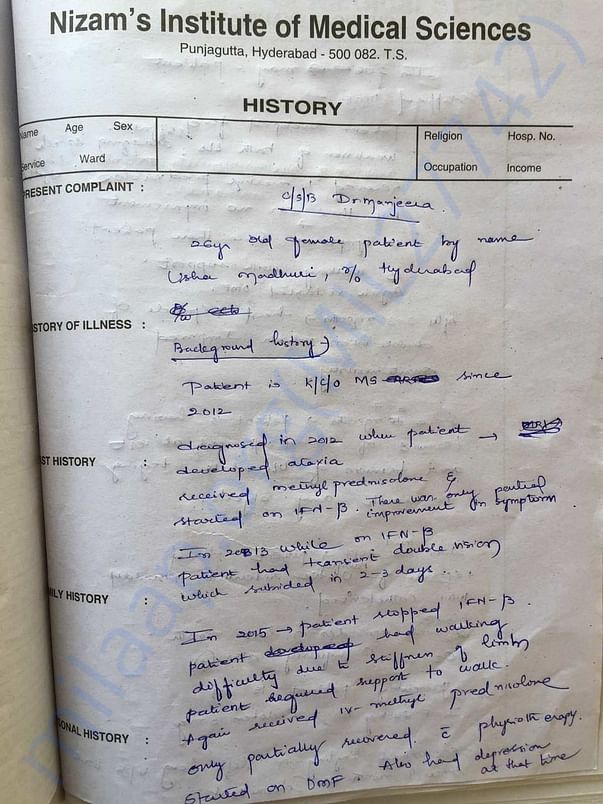 Nizam's Institute of Medical Sciences
Punjagutta, Hyderabad - 500 082. T.S.
HISTORY
Name Age Sex Religion Hosp. No.
Service Ward Occupation Income
PRESENT COMPLAINT :
C/S/B Dr Manjeera.
26yr old female patient by name
Usha Madhuri, r/o Hyderabad
HISTORY OF ILLNESS :
Background history
Patient is K/C/O MS since
2012
diagnosed in 2012 when patient →
PAST HISTORY :
developed ataxia
received methylprednisolone &
started on IFN-β. There was only partial
improvement in symptom
In 2013 while on IFN-β
patient had transient double vision
which subsided in 2-3 days...
FAMILY HISTORY :
In 2015 → patient stopped IFN-β.
patient had walking
difficulty due to stiffness of limbs
patient required support to walk.
Again received IV- methyl prednisolone
PERSONAL HISTORY :
only partially recovered c̄ physiotherapy.
started on DMF. Also had depression
at that time